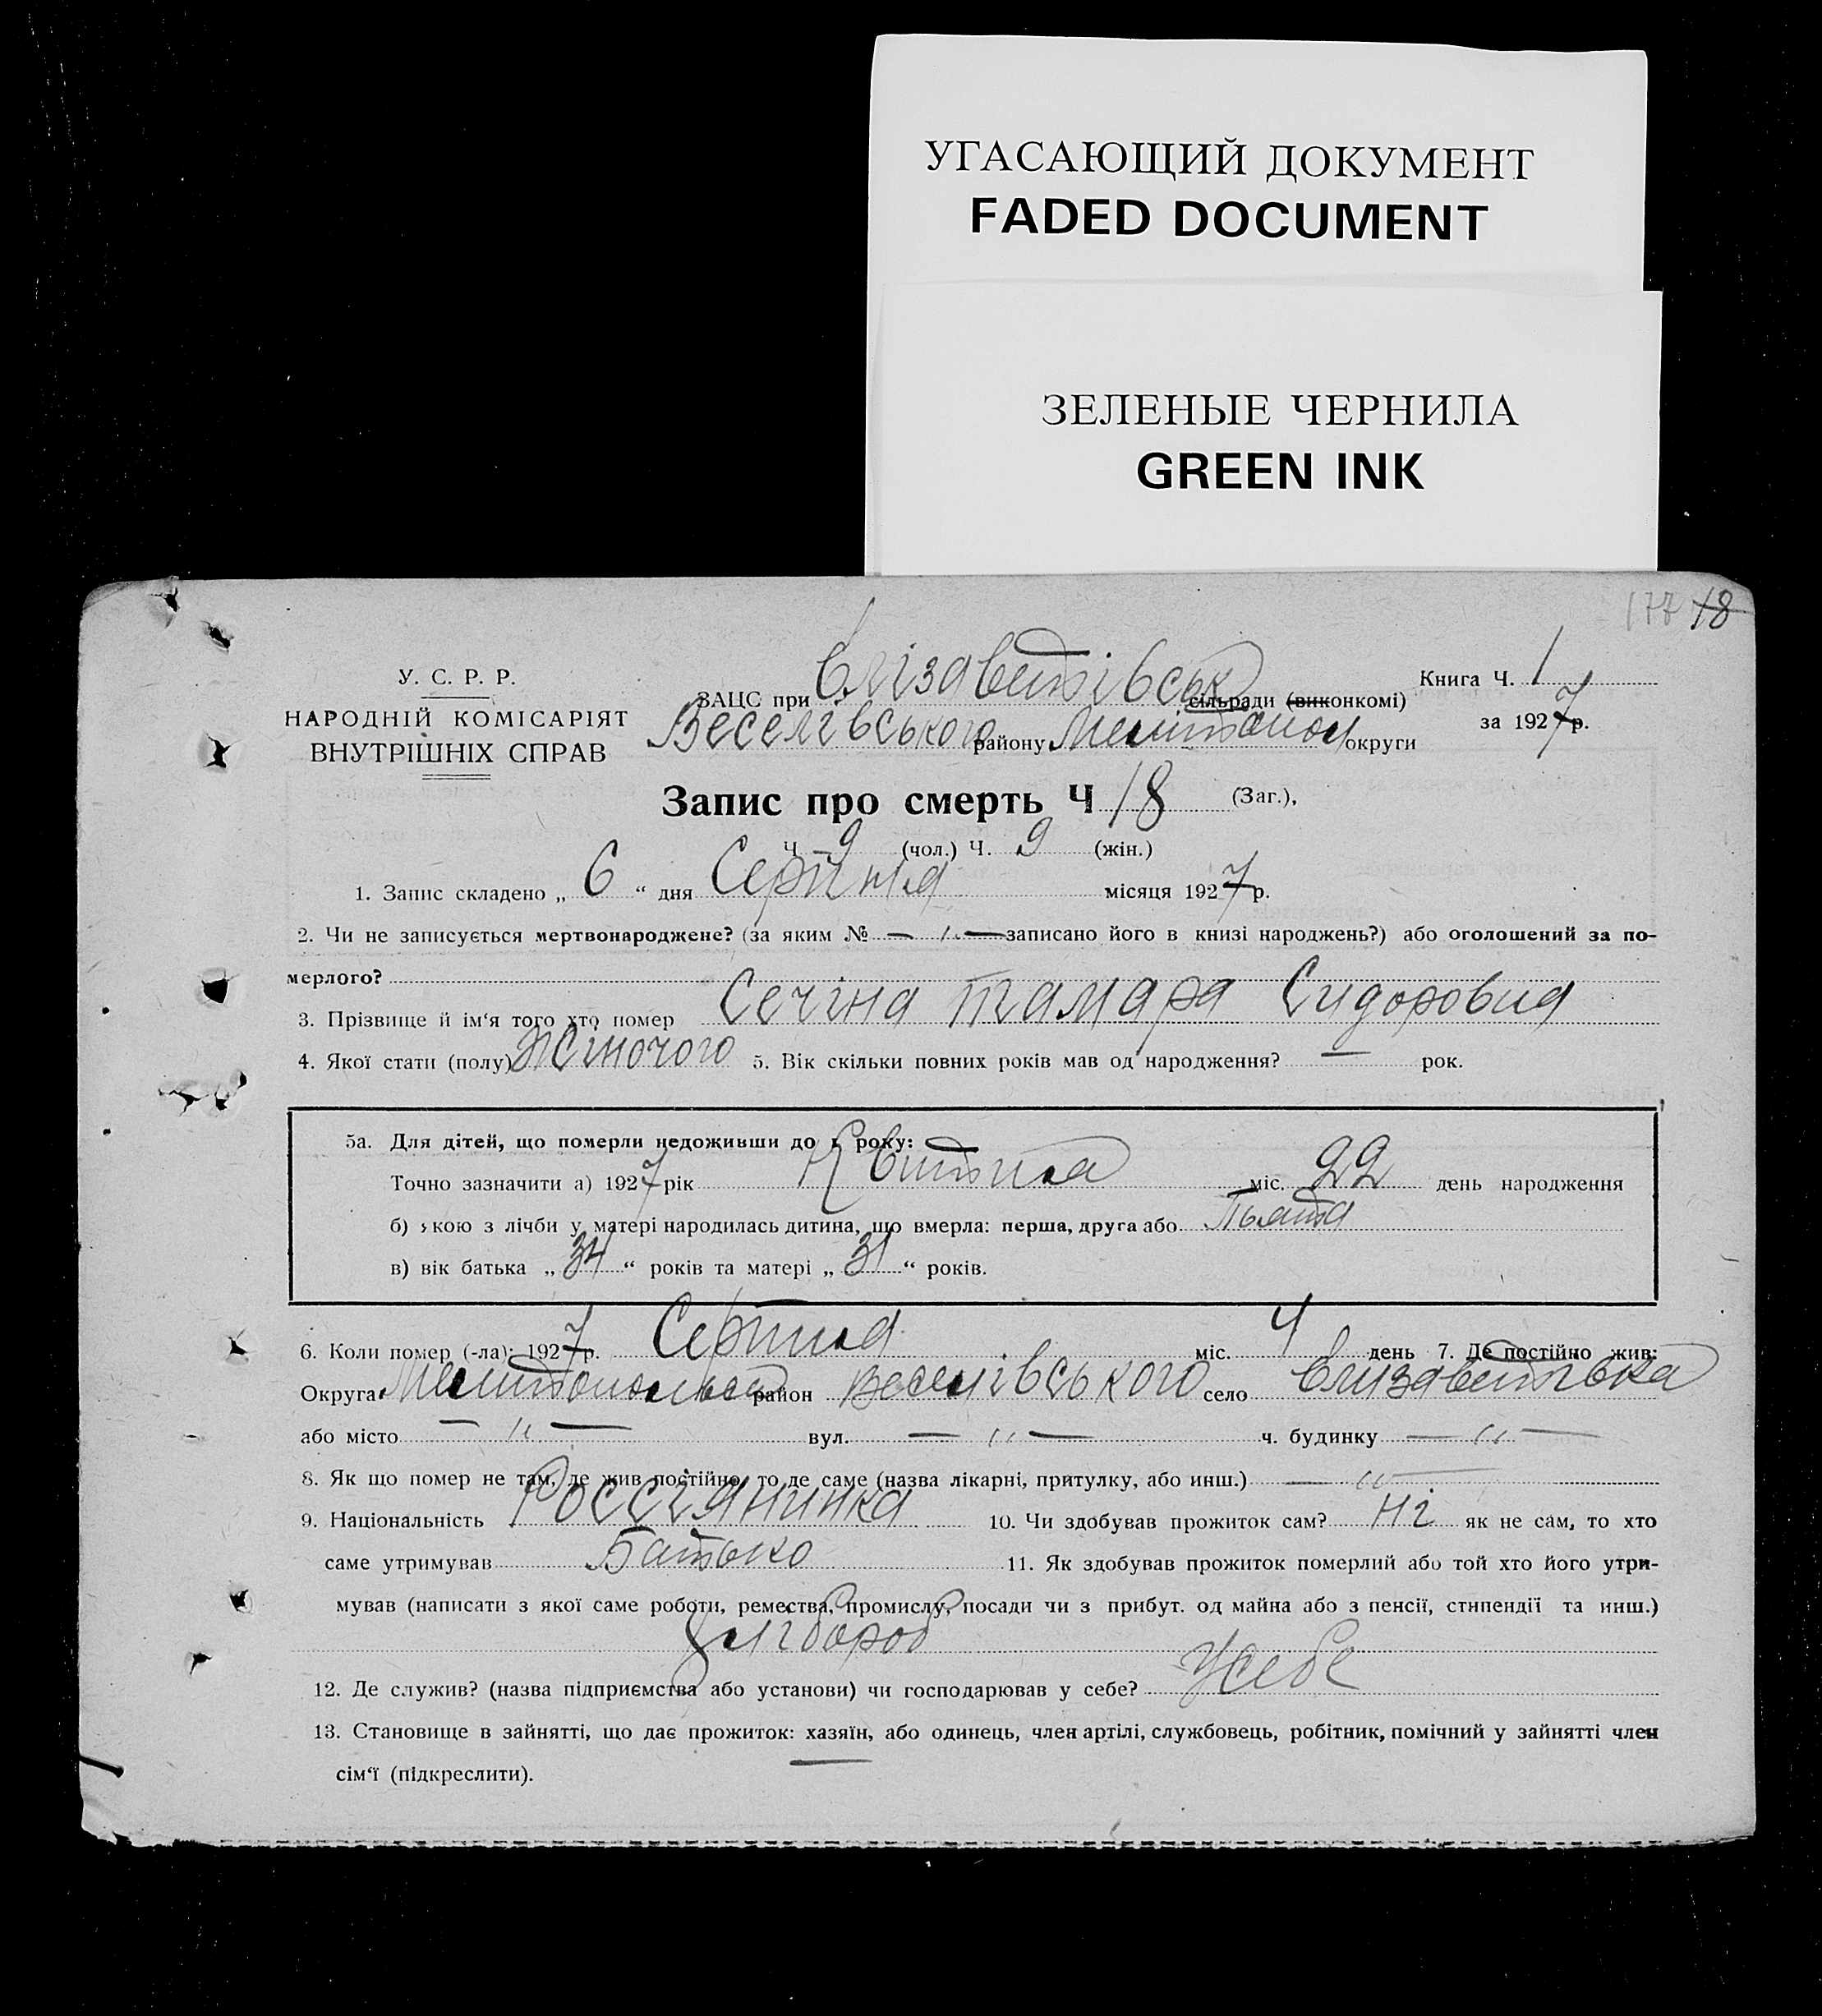 УГАСАЮЩИЙ ДОКУМЕНТ
FADED DOCUMENT
ЗЕЛЕНЫЕ ЧЕРНИЛА
GREEN INK
177 18
У. С. Р. Р.
НАРОДНІЙ КОМІСАРІЯТ
ВНУТРІШНІХ СПРАВ
ЗАЦС при Елізаветівськ сільради (виконкомі)
Веселівського району Мелитопол округи
Книга Ч. 1
за 1927 р.
Запис про смерть Ч 18 (Заг.),
Ч 9 (чол.) Ч. 9 (жін.)
1. Запис складено „ 6 “ дня Серпня місяця 1927 р.
2. Чи не записується мертвонароджене? (за яким № — „ — записано його в книзі народжень?) або оголошений за по-
мерлого?
3. Прізвище й ім‘я того хто помер Сечіна Тамара Сидоровна
4. Якої стати (полу) Жіночого 5. Вік скільки повних років мав од народження? — рок.
5а. Для дітей, що померли недоживши до 1 року:
Точно зазначити а) 1927 рік Квитня міс. 22 день народження
б) якою з лічби у матері народилась дитина, що вмерла: перша, друга або Пьята
в) вік батька „ 34 “ років та матері „ 31 “ років.
6. Коли помер (-ла): 1927 р. Серпня міс. 4 день 7. Де постійно жив:
Округа Мелитопольськ район Веселівського село Елизаветівка
або місто — „ — вул. — „ — ч. будинку — „ —
8. Як що помер не там, де жив постійно, то де саме (назва лікарні, притулку, або инш.) — „ —
9. Національність Россіянинка 10. Чи здобував прожиток сам? Ні як не сам, то хто
саме утримував Батько 11. Як здобував прожиток померлий або той хто його утри-
мував (написати з якої саме роботи, ремества, промислу, посади чи з прибут. од майна або з пенсії, стипендії та инш.)
Хлібороб
12. Де служив? (назва підприємства або установи) чи господарював у себе? У себе
13. Становище в зайнятті, що дає прожиток: хазяїн, або одинець, член артілі, службовець, робітник, помічний у зайнятті член
сім‘ї (підкреслити).